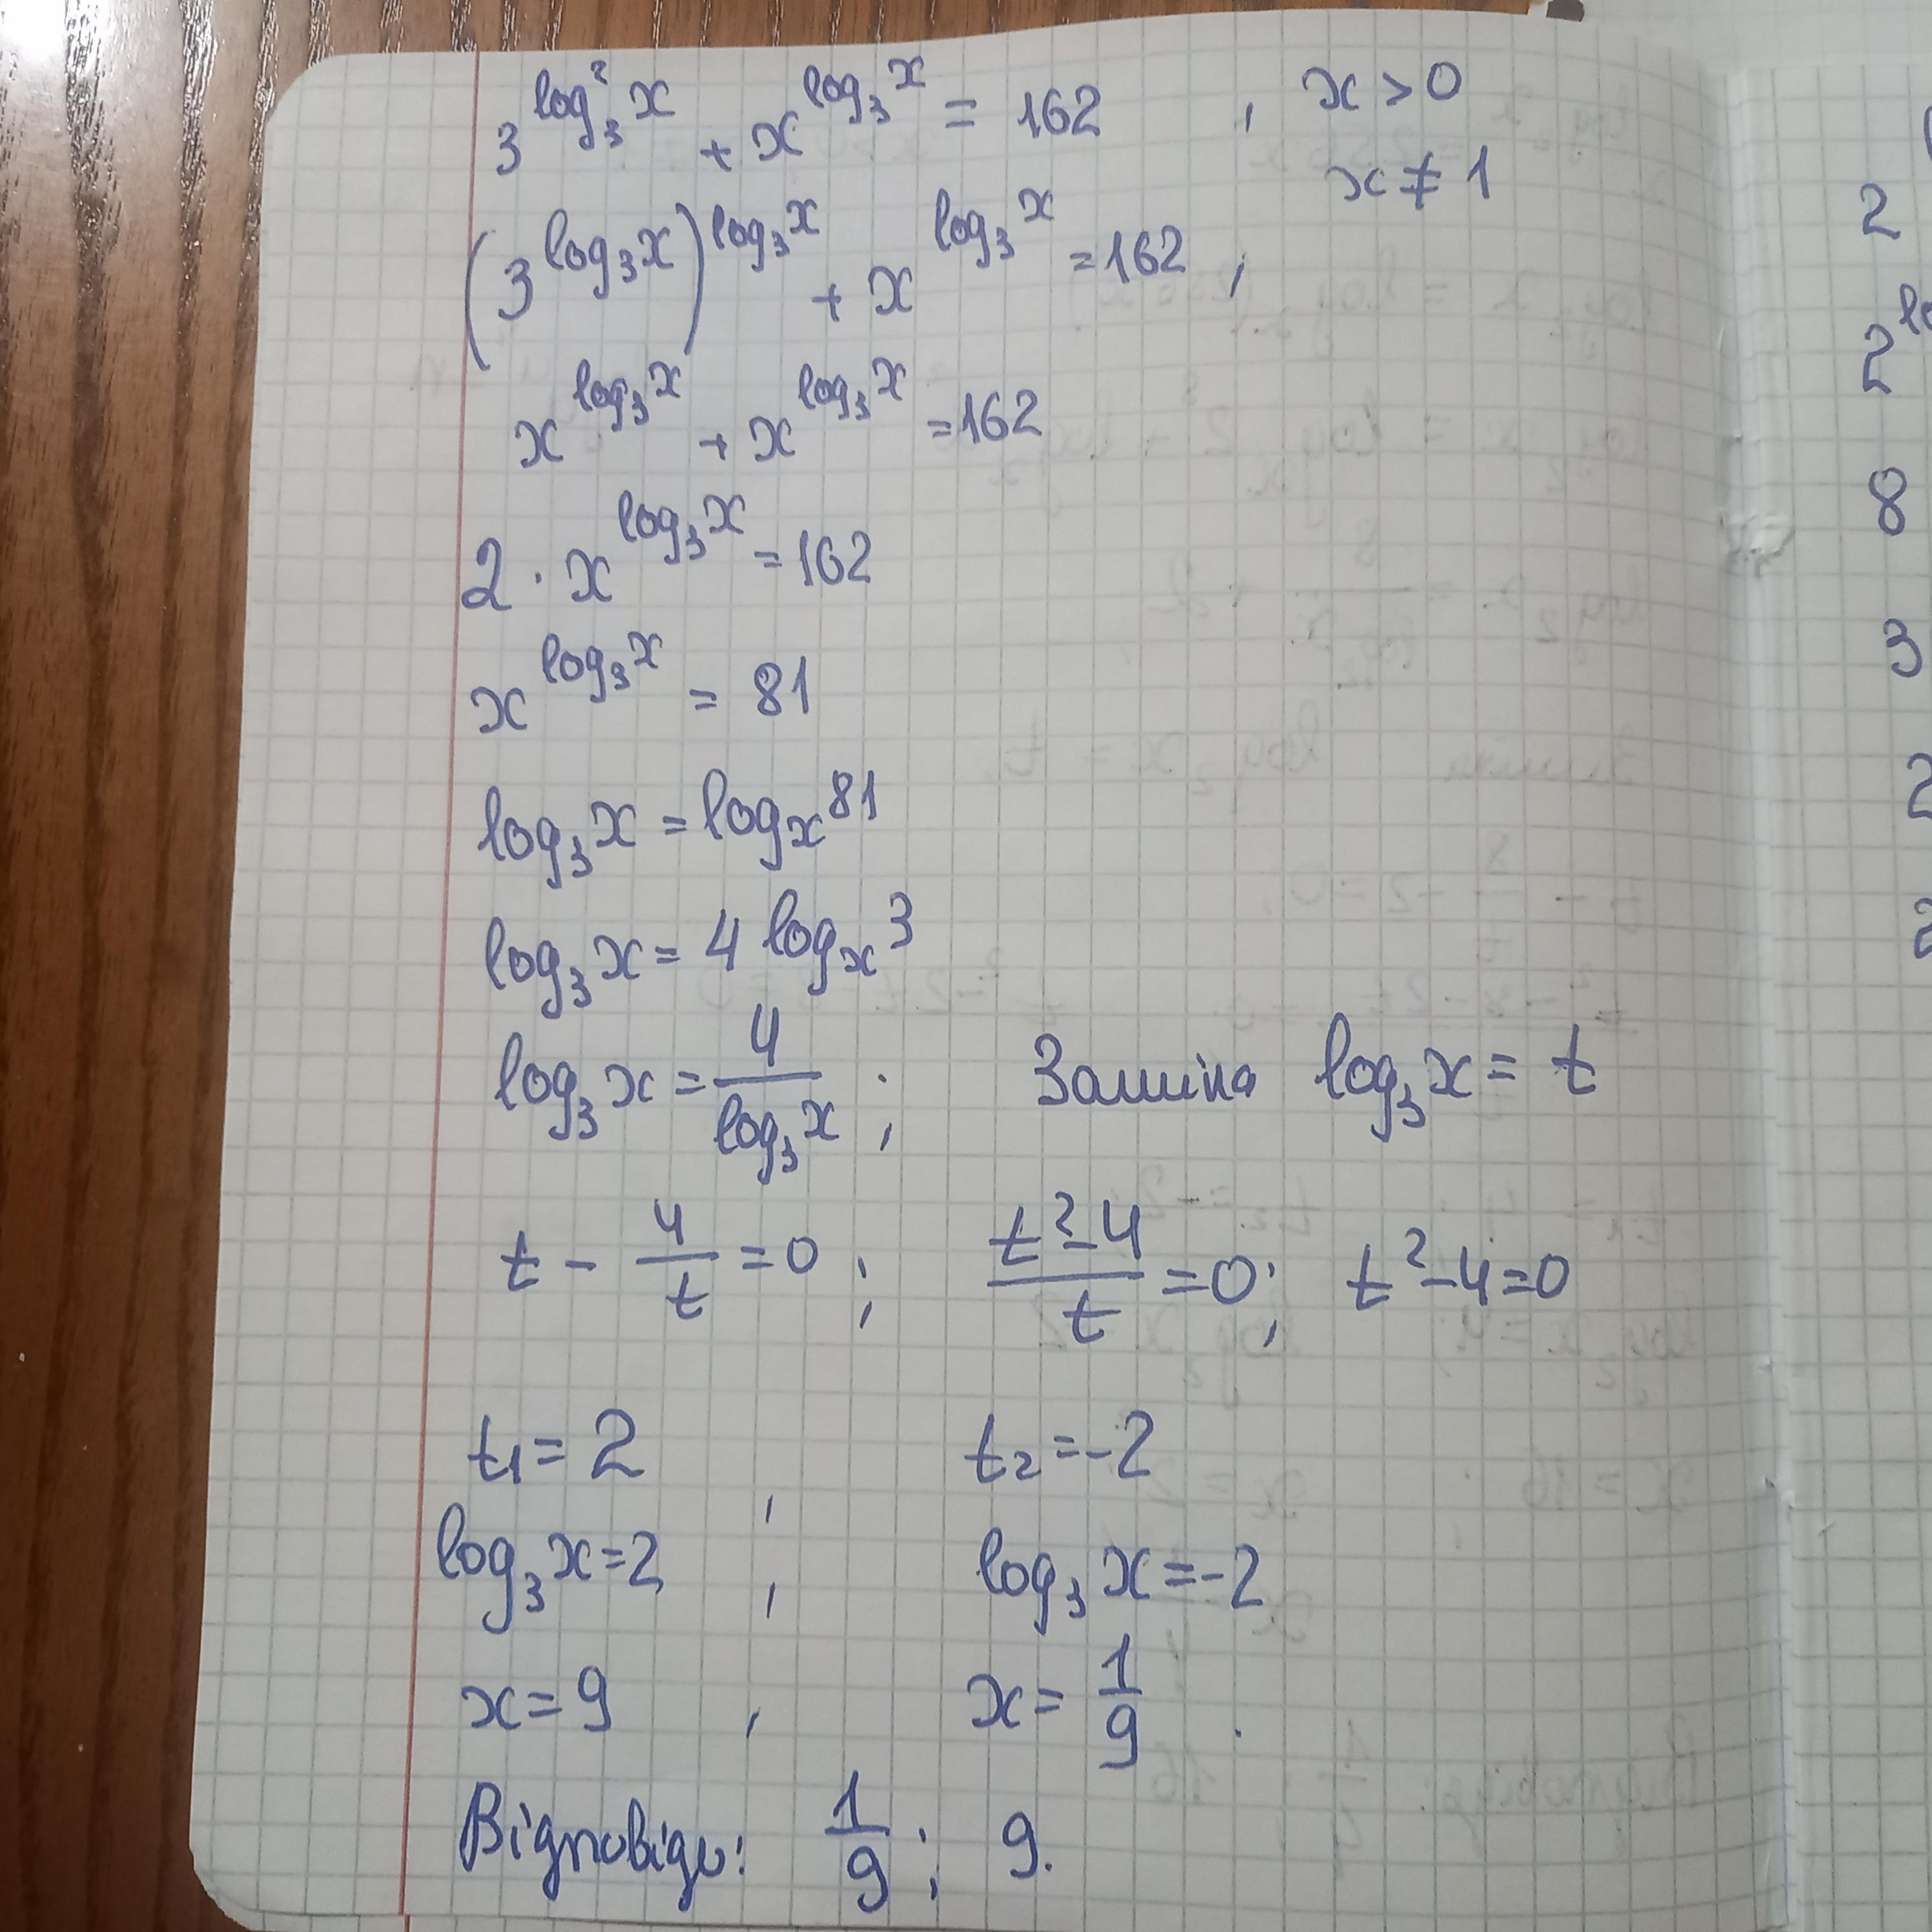 3^(log₃²x) + x^(log₃x) = 162 , x > 0
x ≠ 1
(3^(log₃x))^(log₃x) + x^(log₃x) = 162 ,
x^(log₃x) + x^(log₃x) = 162
2 · x^(log₃x) = 162
x^(log₃x) = 81
log₃x = logₓ81
log₃x = 4 logₓ3
log₃x = 4/log₃x ; Заміна log₃x = t
t - 4/t = 0 ; (t²-4)/t = 0 ; t²-4=0
t₁ = 2 , t₂ = -2
log₃x=2 , log₃x=-2
x = 9 , x = 1/9 .
Відповідь: 1/9 ; 9.
2
2
8
3
2
2